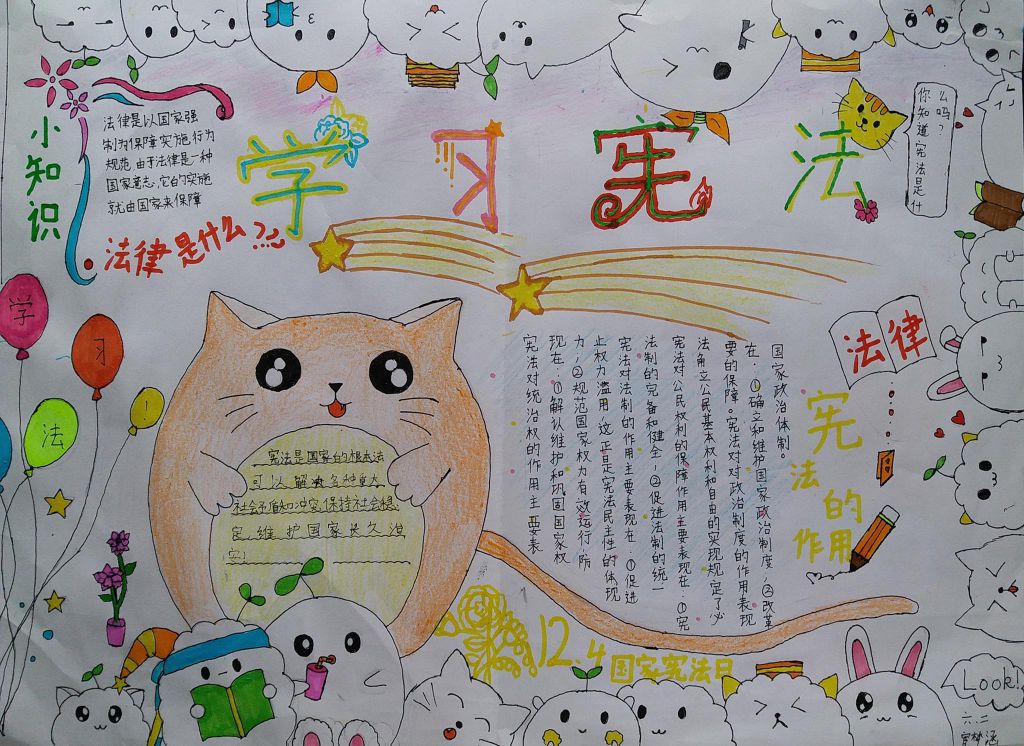 学习宪法
小知识
法律是以国家强
制为保障实施行为
规范,由于法律是一种
国家意志,它的实施
就由国家来保障
法律是什么?
你知道宪法是什
么吗?
学
习
法
!
宪法是国家的根本法
可以解决各种重大
社会矛盾和冲突,保持社会稳
定,维护国家长久治
安!
法律
宪法的作用
宪法对统治权的作用主要表
现在:①解认维护和巩固国家权
力;②规范国家权力有效运行,防
止权力滥用,这正是宪法民主性的体现
宪法对法制的作用主要表现在:①促进
法制的完备和健全;②促进法制的统一
宪法对公民权利的保障作用主要表现在:①宪
法角立公民基本权利和自由的实现规定了必
要的保障。宪法对对政治制度的作用表现
在:①确立和维护国家政治制度;②改革
国家政治体制。
12.4
国家宪法日
Look!
六.二